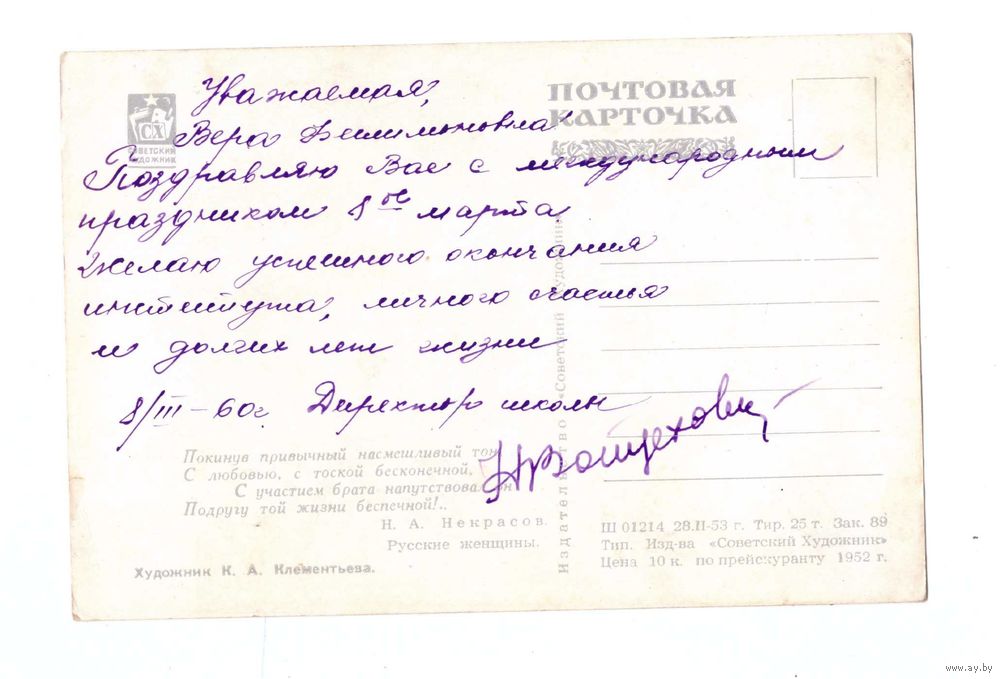 Уважаемая,
Вера Филимоновна!
Поздравляю Вас с международным
праздником 8ое марта
Желаю успешного окончания
института, личного счастья
и долгих лет жизни
8/III – 60г Директор школы
СХ
СОВЕТСКИЙ
ХУДОЖНИК
ПОЧТОВАЯ
КАРТОЧКА
Издательство «Советский Художник»
Покинув привычный насмешливый тон,
С любовью, с тоской бесконечной,
С участием брата напутствовал он
Подругу той жизни беспечной!..
Н. А. Некрасов.
Русские женщины.
Художник К. А. Клементьева.
Ш 01214 28.II-53 г. Тир. 25 т. Зак. 89
Тип. Изд-ва «Советский Художник»
Цена 10 к. по прейскуранту 1952 г.
www.ay.by